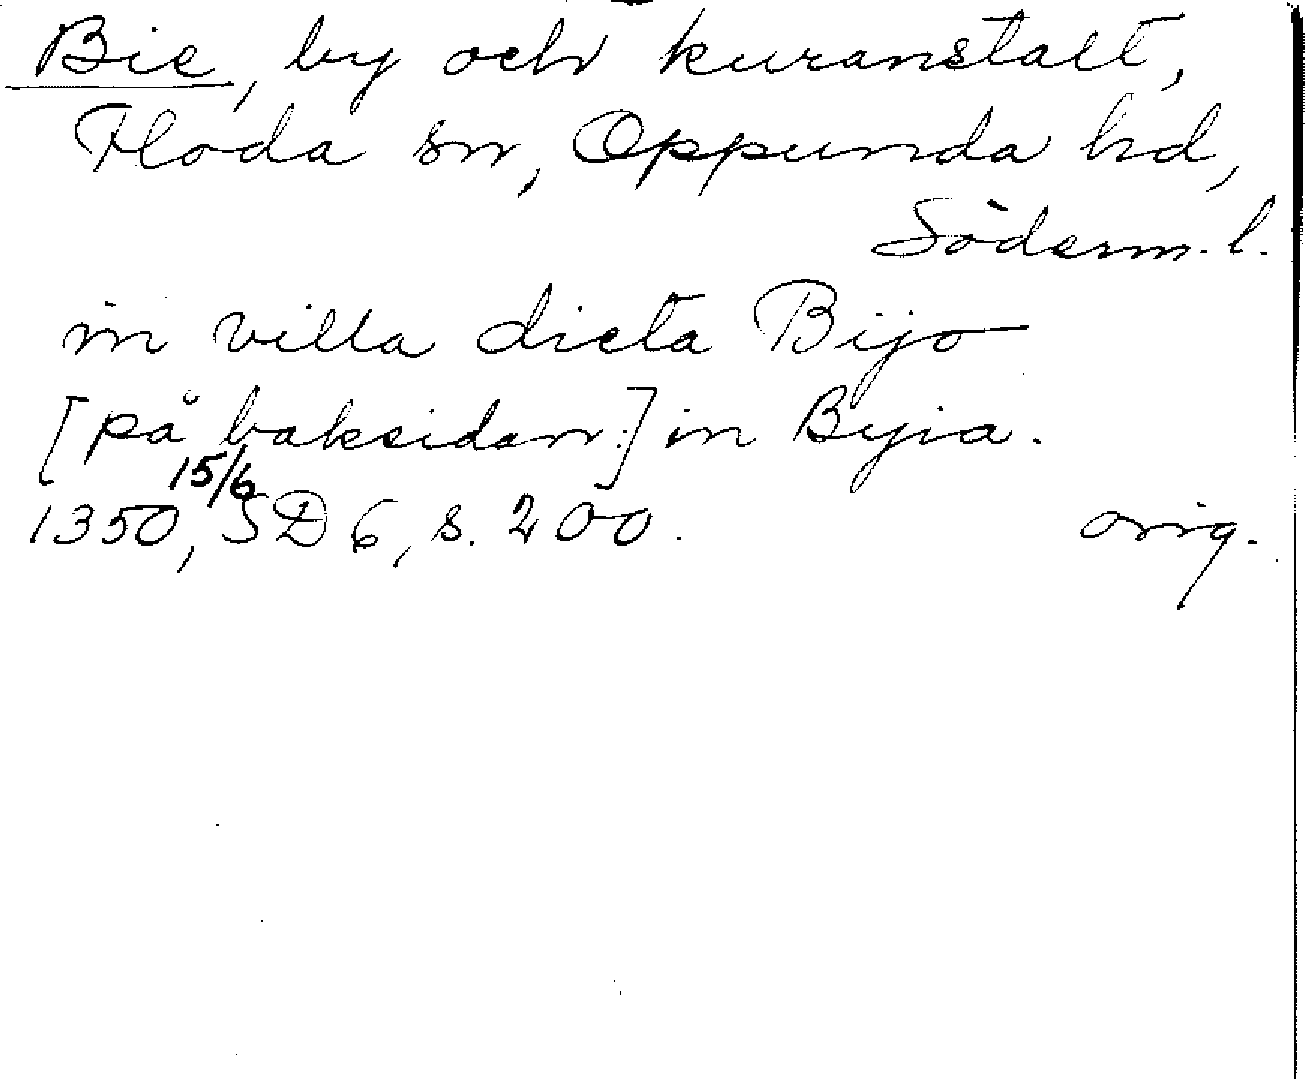 Bie, by och kuranstalt,
Floda sn, Oppunda hd,
Söderm. l.
in villa dicta Bijo
[på baksidan:] in Byia.
1350, 15/6 SD 6, s. 200. orig.